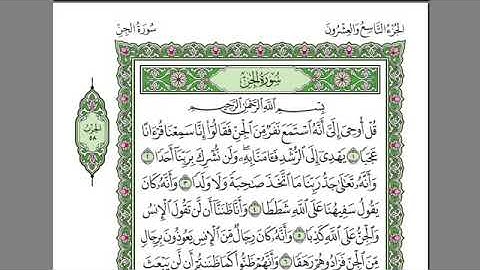 الجُزْءُ التَّاسِعُ وَالعِشْرُونَ
سُورَةُ الجِنِّ
سُورَةُ الجِنِّ
بِسْمِ اللَّهِ الرَّحْمَٰنِ الرَّحِيمِ
قُلْ أُوحِيَ إِلَيَّ أَنَّهُ ٱسْتَمَعَ نَفَرٌ مِّنَ ٱلْجِنِّ فَقَالُوٓا۟ إِنَّا سَمِعْنَا قُرْءَانًا
عَجَبًا ١ يَهْدِىٓ إِلَى ٱلرُّشْدِ فَـَٔامَنَّا بِهِۦ وَلَن نُّشْرِكَ بِرَبِّنَآ أَحَدًا ٢
وَأَنَّهُۥ تَعَٰلَىٰ جَدُّ رَبِّنَا مَا ٱتَّخَذَ صَٰحِبَةً وَلَا وَلَدًا ٣ وَأَنَّهُۥ كَانَ
يَقُولُ سَفِيهُنَا عَلَى ٱللَّهِ شَطَطًا ٤ وَأَنَّا ظَنَنَّآ أَن لَّن تَقُولَ ٱلْإِنسُ
وَٱلْجِنُّ عَلَى ٱللَّهِ كَذِبًا ٥ وَأَنَّهُۥ كَانَ رِجَالٌ مِّنَ ٱلْإِنسِ يَعُوذُونَ بِرِجَالٍ
مِّنَ ٱلْجِنِّ فَزَادُوهُمْ رَهَقًا ٦ وَأَنَّهُمْ ظَنُّوا۟ كَمَا ظَنَنتُمْ أَن لَّن يَبْعَثَ
الحِزْبُ
٥٨